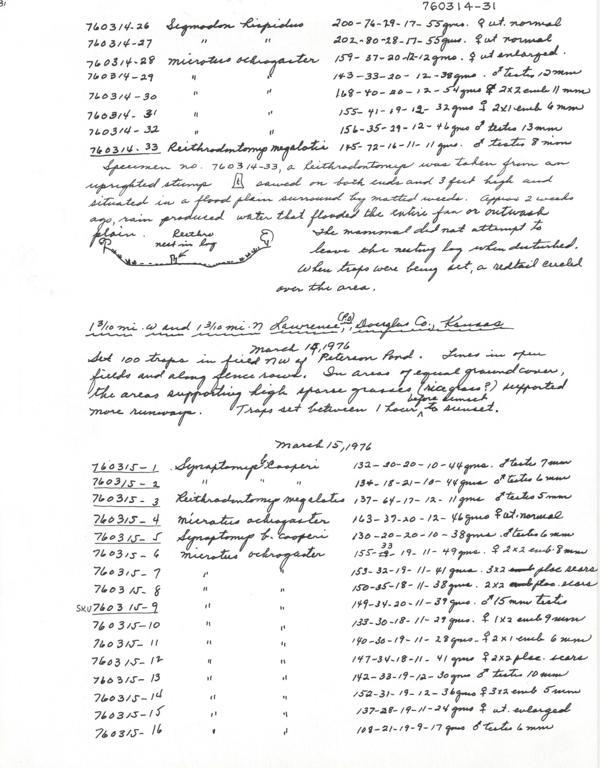 31
760314-31
760314-26 Sigmodon hispidus 200-76-29-17-55gms. ♀ ut. normal
760314-27 " " 202-80-28-17-55gms. ♀ ut normal
760314-28 Microtus ochrogaster 159-37-20-12-12gms. ♀ ut enlarged.
760314-29 " " 143-33-20-12-38gms. ♂ testis 12mm
760314-30 " " 168-40-20-12-54gms ♀ 2x2 emb 11 mm
760314-31 " " 155-41-19-12-32gms ♀ 2x1 emb 6 mm
760314-32 " " 156-35-29-12-46gms ♂ testes 13mm
760314-33 Reithrodontomys megalotis 145-72-16-11-11gms. ♂ testes 8 mm
Specimen no. 760314-33, a reithrodontomys was taken from an
uprighted stump sawed on both ends and 3 feet high and
situated in a flood plain surround by matted weeds. Approx 2 weeks
ago, rain produced water that flooded the entire fan or outwash
plain. Reithro
nest in log
The mammal did not attempt to
leave the nesting log when disturbed.
When traps were being set, a redtail circled
over the area.
1 3/10 mi. W and 1 3/10 mi. N Lawrence (P.O.), Douglas Co., Kansas
March 14, 1976
Set 100 traps in field NW of Peterson Pond. Lines in open
fields and along fence rows. In areas of equal ground cover,
the areas supporting high sparse grasses (rice grass?) supported
more runways. Traps set between 1 hour before sunset to sunset.
March 15, 1976
760315-1 Synaptomys b. cooperi 132-20-20-10-44gms. ♂ testes 7mm
760315-2 " " " 134-18-21-10-44gms ♂ testes 6mm
760315-3 Reithrodontomys megalotis 137-64-17-12-11gms ♂ testes 5mm
760315-4 Microtus ochrogaster 163-37-20-12-46gms ♀ ut. normal
760315-5 Synaptomys b. cooperi 130-20-20-10-38gms. ♂ testes 6mm
760315-6 Microtus ochrogaster 155-33-19-11-49gms. ♀ 2x2 emb. 8mm
760315-7 " " 153-32-19-11-41gms. 3x2 plac scars
760315-8 " " 150-35-18-11-38gms. 2x2 plac. scars
SKU 760315-9 " " 149-34-20-11-39gms. ♂ 15mm testes
760315-10 " " 133-30-18-11-29gms. ♀ 1x2 emb 9mm
760315-11 " " 140-30-19-11-28gms. ♀ 2x1 emb 6mm
760315-12 " " 147-34-18-11-41gms ♀ 2x2 plac. scars
760315-13 " " 142-33-19-12-30gms ♂ testes 10mm
760315-14 " " 152-31-19-12-36gms ♀ 3x2 emb 5mm
760315-15 " " 137-28-19-11-24gms ♀ ut. enlarged
760315-16 " " 108-21-19-9-17gms ♂ testes 6mm